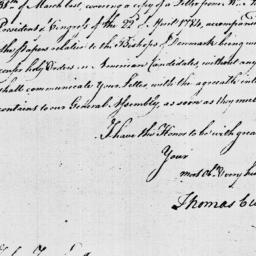 31st of March last, covering a copy of a Letter from
Presidents of Congress of the 22d. April 1784, accompani
the Papers relative to the Bishops of Denmark being w
confer holy Orders on American Candidates without any
shall communicate Your Letter, with the agreeable inte
contains to our General Assembly, as soon as they meet
I have the Honor to be with grea
Your
most Obt. & very hu
Thomas